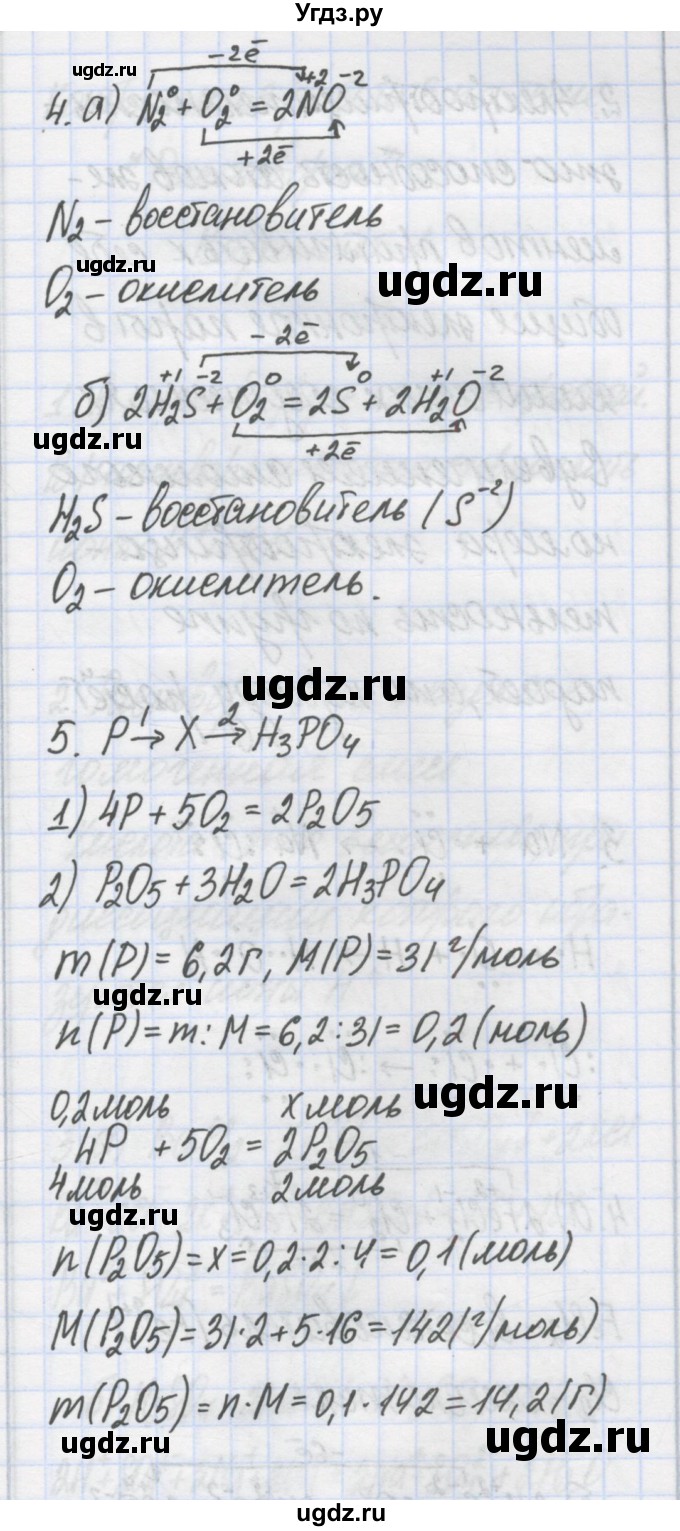 Угдз.ру
-2ē
ugdz.ru
4. а) N₂⁰ + O₂⁰ = 2N⁺²O⁻²
+2ē
N₂ – восстановитель
ugdz.ru
O₂ – окислитель ugdz.ru
-2ē
б) 2H₂⁺¹S⁻² + O₂⁰ = 2S⁰ + 2H₂⁺¹O⁻²
ugdz.ru
+2ē
H₂S – восстановитель (S⁻²)
O₂ – окислитель.
ugdz.ru
5. P →¹ X →² H₃PO₄
1) 4P + 5O₂ = 2P₂O₅
ugdz.ru
2) P₂O₅ + 3H₂O = 2H₃PO₄
m(P) = 6,2г, M(P) = 31 г/моль
ugdz.ru
n(P) = m : M = 6,2 : 31 = 0,2 (моль)
ugdz.ru
0,2моль x моль
4P + 5O₂ = 2P₂O₅
4моль 2моль
ugdz.ru
n(P₂O₅) = x = 0,2·2 : 4 = 0,1 (моль)
M(P₂O₅) = 31·2 + 5·16 = 142 (г/моль)
m(P₂O₅) = n·M = 0,1·142 = 14,2 (г)
ugdz.ru ugdz.ru
Угдз.ру